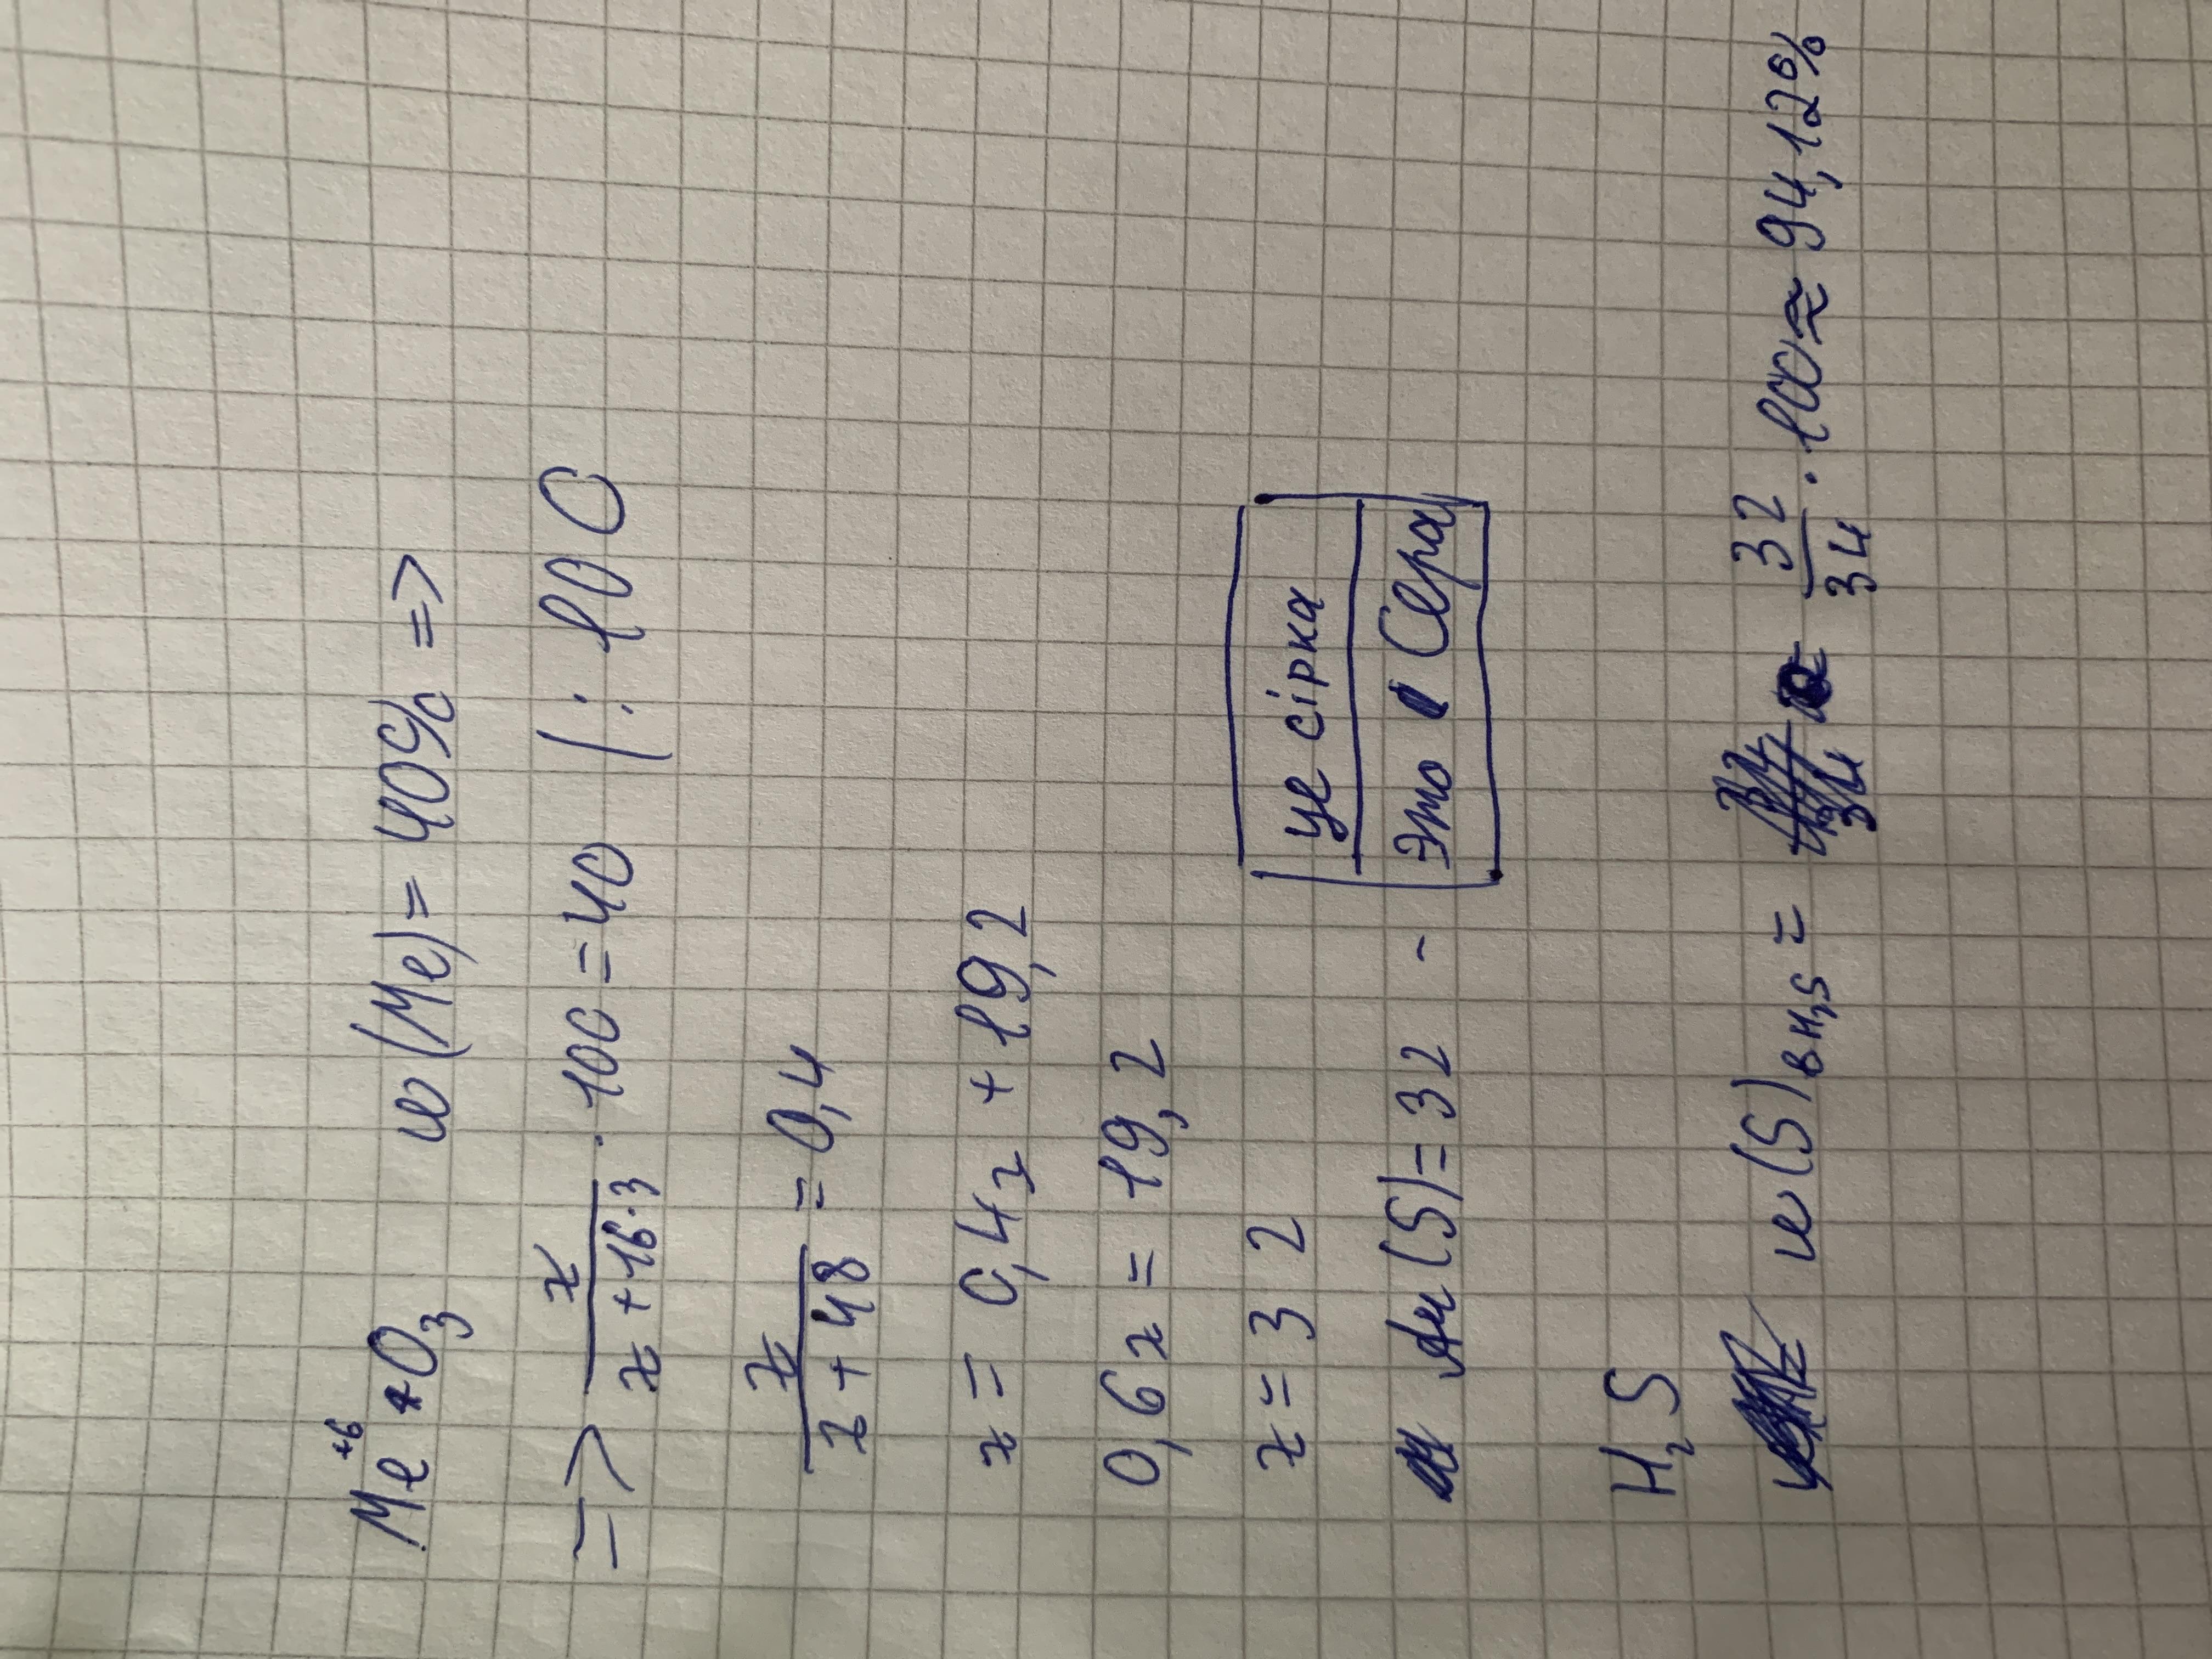 Me⁺⁶O₃ w(Me) = 40% =>
=> x/(x+16·3) · 100 = 40 | : 100
x/(x+48) = 0,4
x = 0,4x + 19,2
0,6x = 19,2
x = 32
це сірка
M(S) = 32 - это Сера
H₂S
w(S) в H₂S = 32/34 · 100 ≈ 94,12%